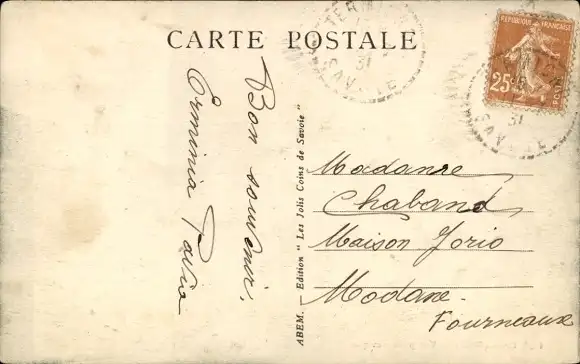 CARTE POSTALE
REPUBLIQUE FRANÇAISE
25c
POSTES
31
SAVOIE
31
SAVOIE
Bon souvenir,
Erminia Pavia
ABEM. - Edition " Les Jolis Coins de Savoie "
Madame
Chaband
Maison Jorio
Modane.
Fourneaux